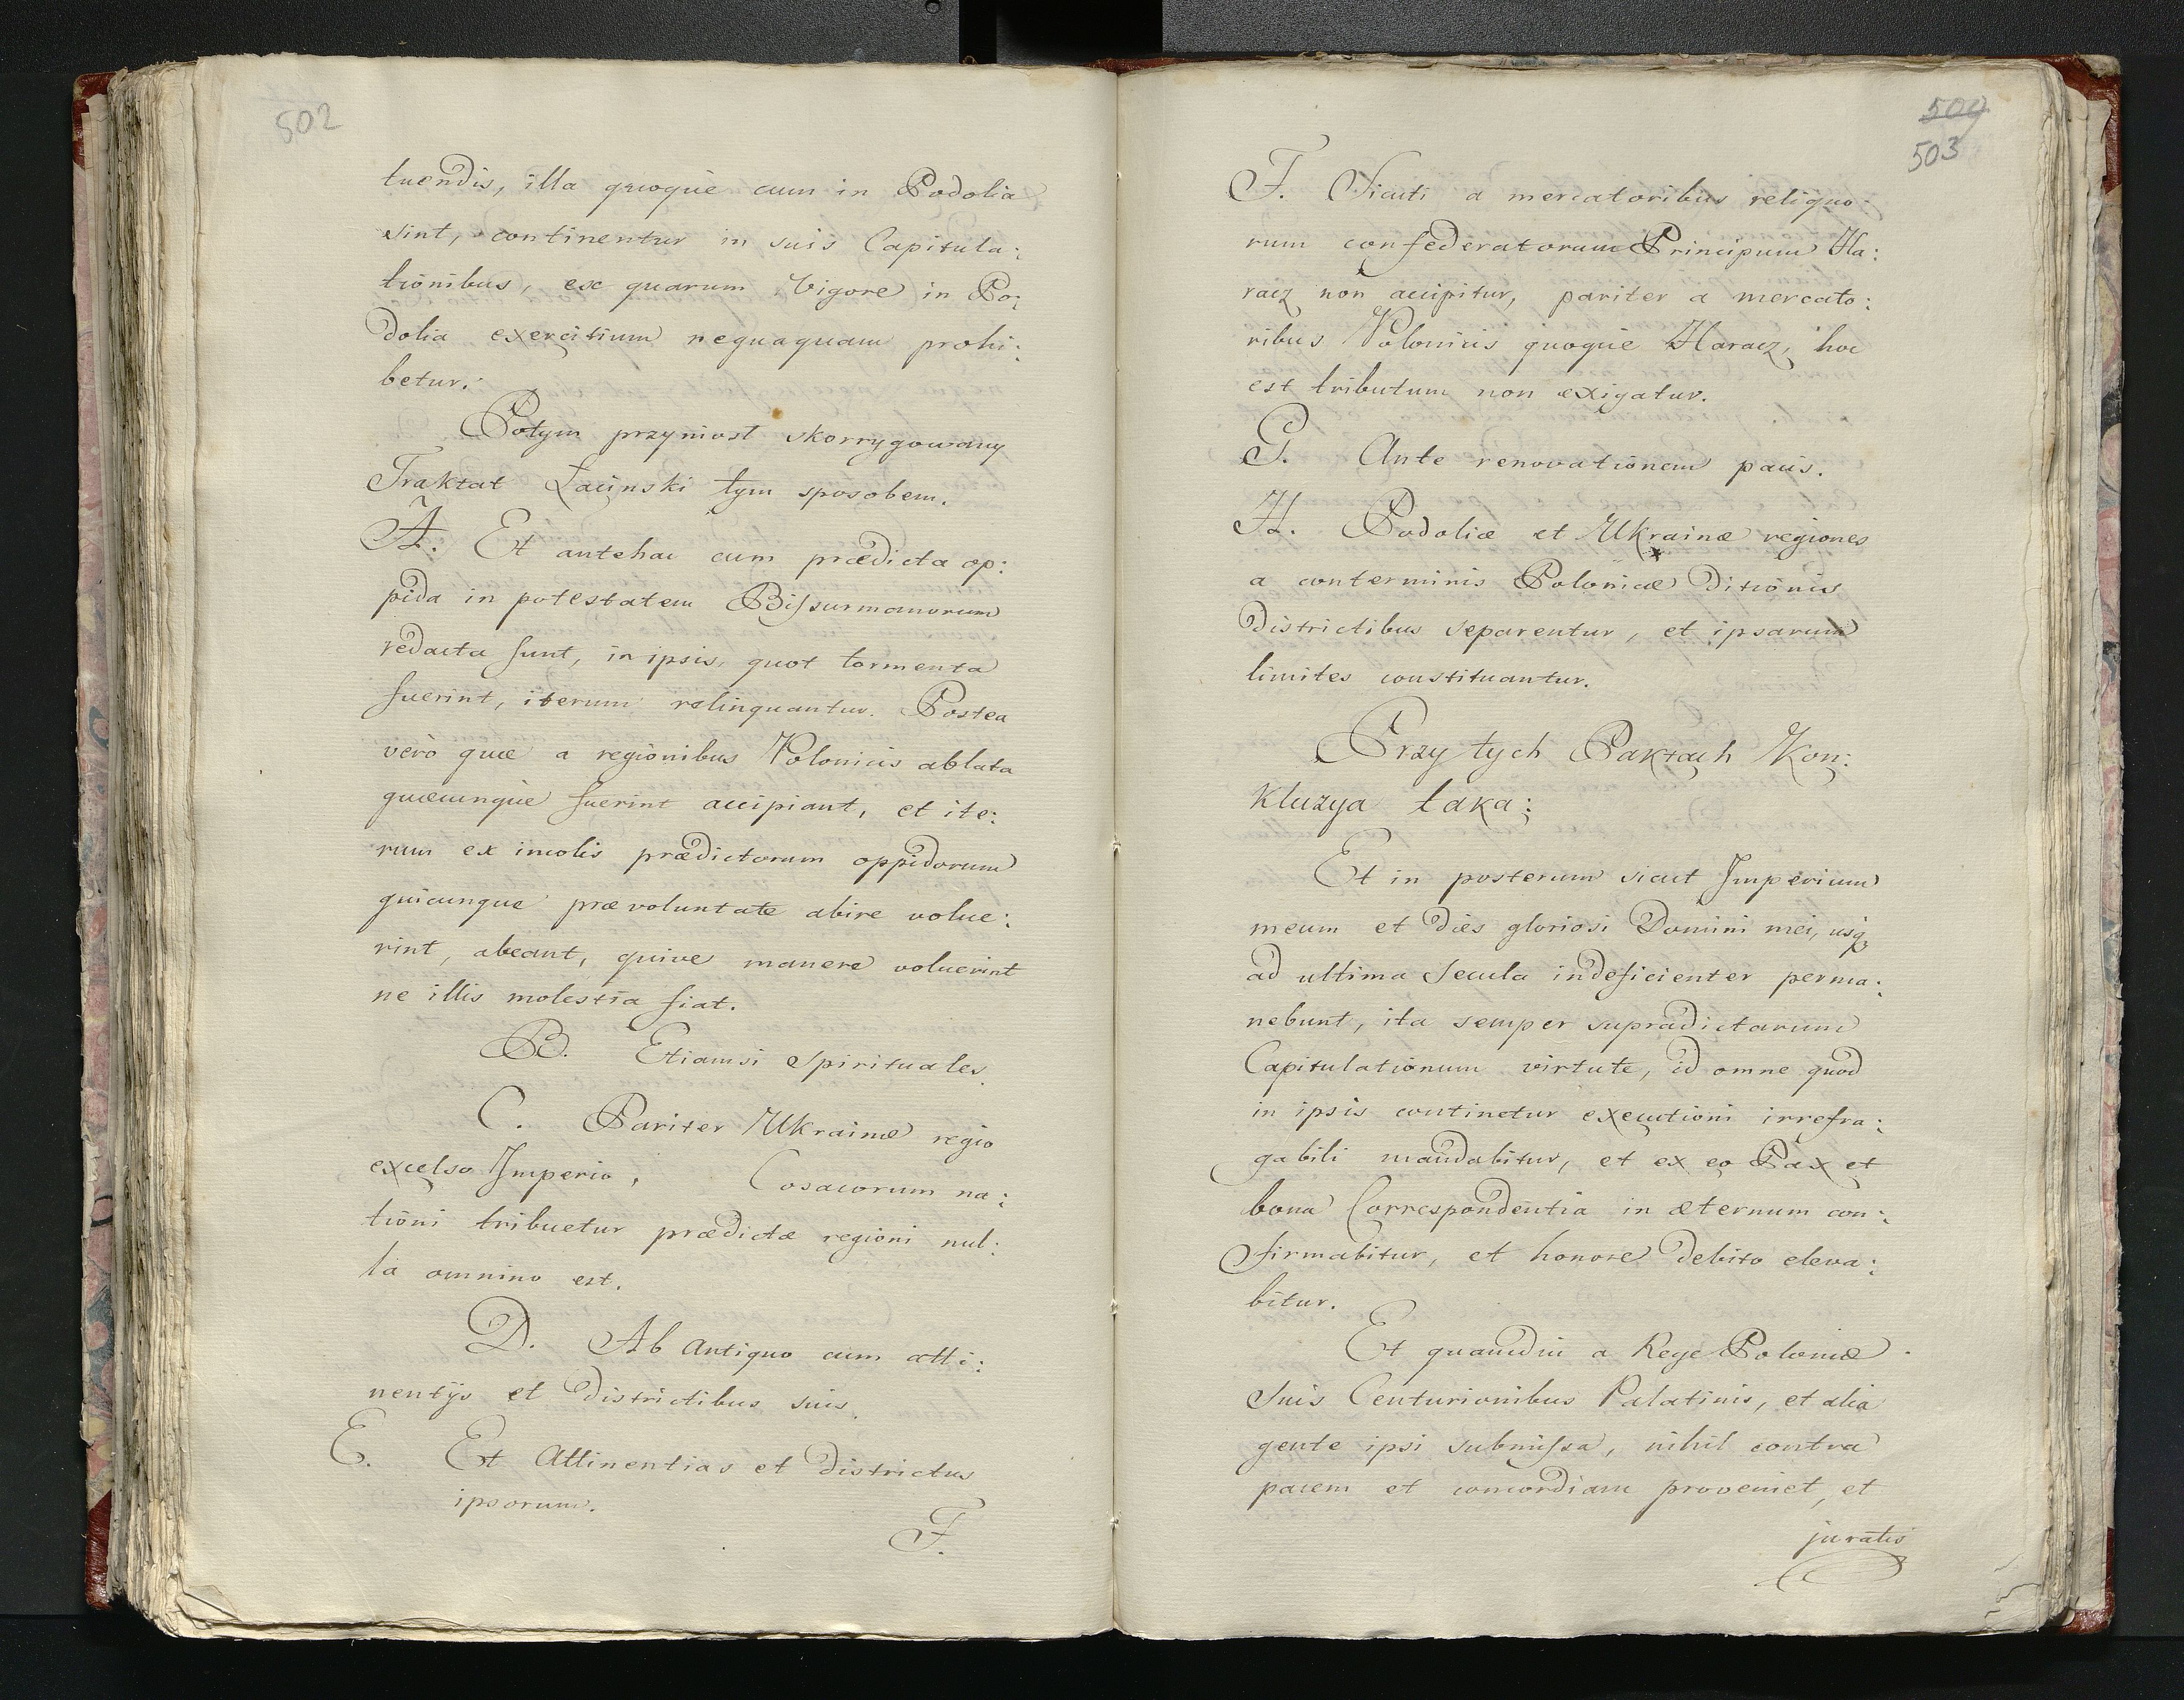 502
tuendis, illa quoque cum in Podolia
sint, continentur in suis Capitula:
tionibus, ex quarum Vigore in Po:
dolia exercitium nequaquam prohi:
betur.
Potym przyniost skorrygowany
Traktat Łaciński tym sposobem.
A. Et antehac cum prædicta op:
pida in potestatem Bissurmanorum
redacta sunt, in ipsis, quot tormenta
fuerint, iterum relinquantur. Postea
vero quæ a regionibus Polonicis ablata
quæcunque fuerint accipiant, et ite:
rum ex incolis prædictorum oppidorum
quicunque præ voluntate abire volue:
rint, abeant, quive manere voluerint
ne illis molestia fiat.
B. Etiamsi Spirituales
C. Pariter Ukrainæ regio
excelso Imperio, Cosacorum na:
tioni tribuetur prædictæ regioni nul:
la omnino est.
D. Ab Antiquo cum atti:
nentijs et Districtibus suis.
E. Et Attinentias et Districtus
ipsorum.
F.
509
503
F. Sicuti a mercatoribus reliquo:
rum confederatorum Principum Ha:
racz non accipitur, pariter a mercato:
ribus Polonicis quoque Haracz, hoc
est tributum non exigatur.
G. Ante renovationem pacis.
H. Podoliæ et Ukrainæ regiones
a conterminis Polonicæ Ditionis
Districtibus separentur, et ipsarum
limites constituantur.
Przy tych Paktach Kon:
kluzya taka:
Et in posterum sicut Imperium
meum et Dies gloriosi Domini mei, usq
ad ultima Secula indeficienter perma:
nebunt, ita semper supradictarum
Capitulationum virtute, id omne quod
in ipsis continetur executioni irrefra:
gabili mandabitur, et ex eo Pax et
bona Correspondentia in æternum con:
firmabitur, et honore Debito eleva:
bitur.
Et quamdiu a Rege Poloniæ
Suis Centurionibus Palatinis, et alia
gente ipsi submissa, nihil contra
pacem et concordiam proveniet, et
juratis